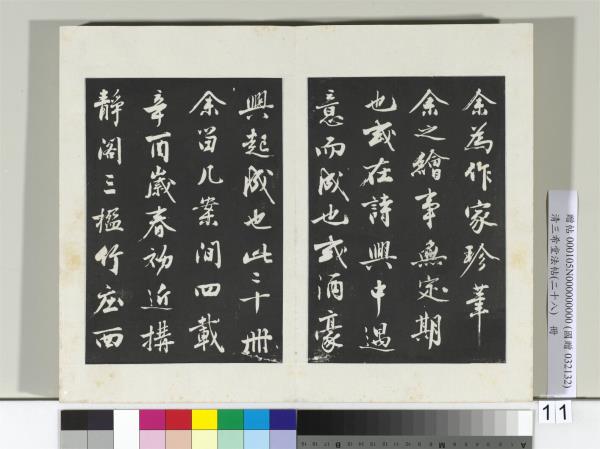 余為作家珍筆
余之繪事無定期
也或在詩興中遇
意而成也或酒豪
興起成也此二十冊
余留几案間四載
辛酉歲春初近搆
靜閣三楹竹庄西
贈帖 000105N000000000 (國贈 032132)
清三希堂法帖(二十八) 冊
11